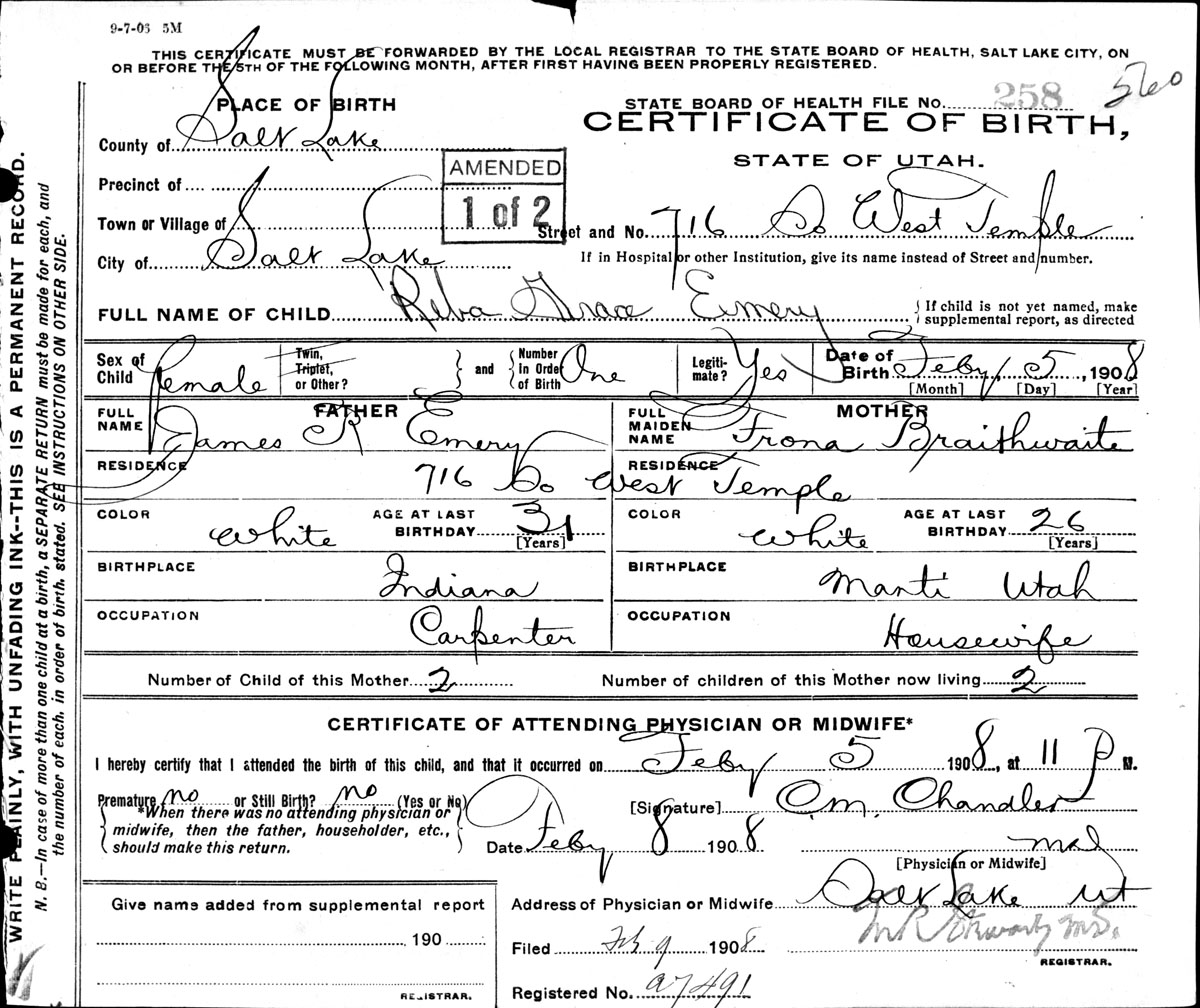 9-7-06 5M
THIS CERTIFICATE MUST BE FORWARDED BY THE LOCAL REGISTRAR TO THE STATE BOARD OF HEALTH, SALT LAKE CITY, ON
OR BEFORE THE 5TH OF THE FOLLOWING MONTH, AFTER FIRST HAVING BEEN PROPERLY REGISTERED.
PLACE OF BIRTH
STATE BOARD OF HEALTH FILE No. 258 560
CERTIFICATE OF BIRTH,
STATE OF UTAH.
County of Salt Lake
Precinct of
Town or Village of
City of Salt Lake
AMENDED
1 of 2
Street and No. 716 So West Temple
If in Hospital or other Institution, give its name instead of Street and number.
FULL NAME OF CHILD Reba Grace Emery
{ If child is not yet named, make
supplemental report, as directed
Sex of Child Female
Twin, Triplet, or Other?
and
Number In Order of Birth One
Legiti-mate? Yes
Date of Birth Feby 5, 1908
[Month] [Day] [Year]
FATHER
FULL NAME James R Emery
MOTHER
FULL MAIDEN NAME Frona Braithwaite
RESIDENCE 716 So West Temple
RESIDENCE
COLOR White AGE AT LAST BIRTHDAY 31 [Years]
COLOR White AGE AT LAST BIRTHDAY 26 [Years]
BIRTHPLACE Indiana
BIRTHPLACE Manti Utah
OCCUPATION Carpenter
OCCUPATION Housewife
Number of Child of this Mother 2
Number of children of this Mother now living 2
CERTIFICATE OF ATTENDING PHYSICIAN OR MIDWIFE*
I hereby certify that I attended the birth of this child, and that it occurred on Feby 5 1908, at 11 P M.
Premature no or Still Birth? no (Yes or No)
*When there was no attending physician or
midwife, then the father, householder, etc.,
should make this return.
[Signature] C.M. Chandler
Date Feby 8 1908
MD
[Physician or Midwife]
Address of Physician or Midwife Salt Lake Ut
Give name added from supplemental report
190
REGISTRAR.
Filed Feb 9 1908
M.D.
REGISTRAR.
Registered No. a7491
WRITE PLAINLY, WITH UNFADING INK--THIS IS A PERMANENT RECORD.
N. B.—In case of more than one child at a birth, a SEPARATE RETURN must be made for each, and
the number of each, in order of birth, stated. SEE INSTRUCTIONS ON OTHER SIDE.